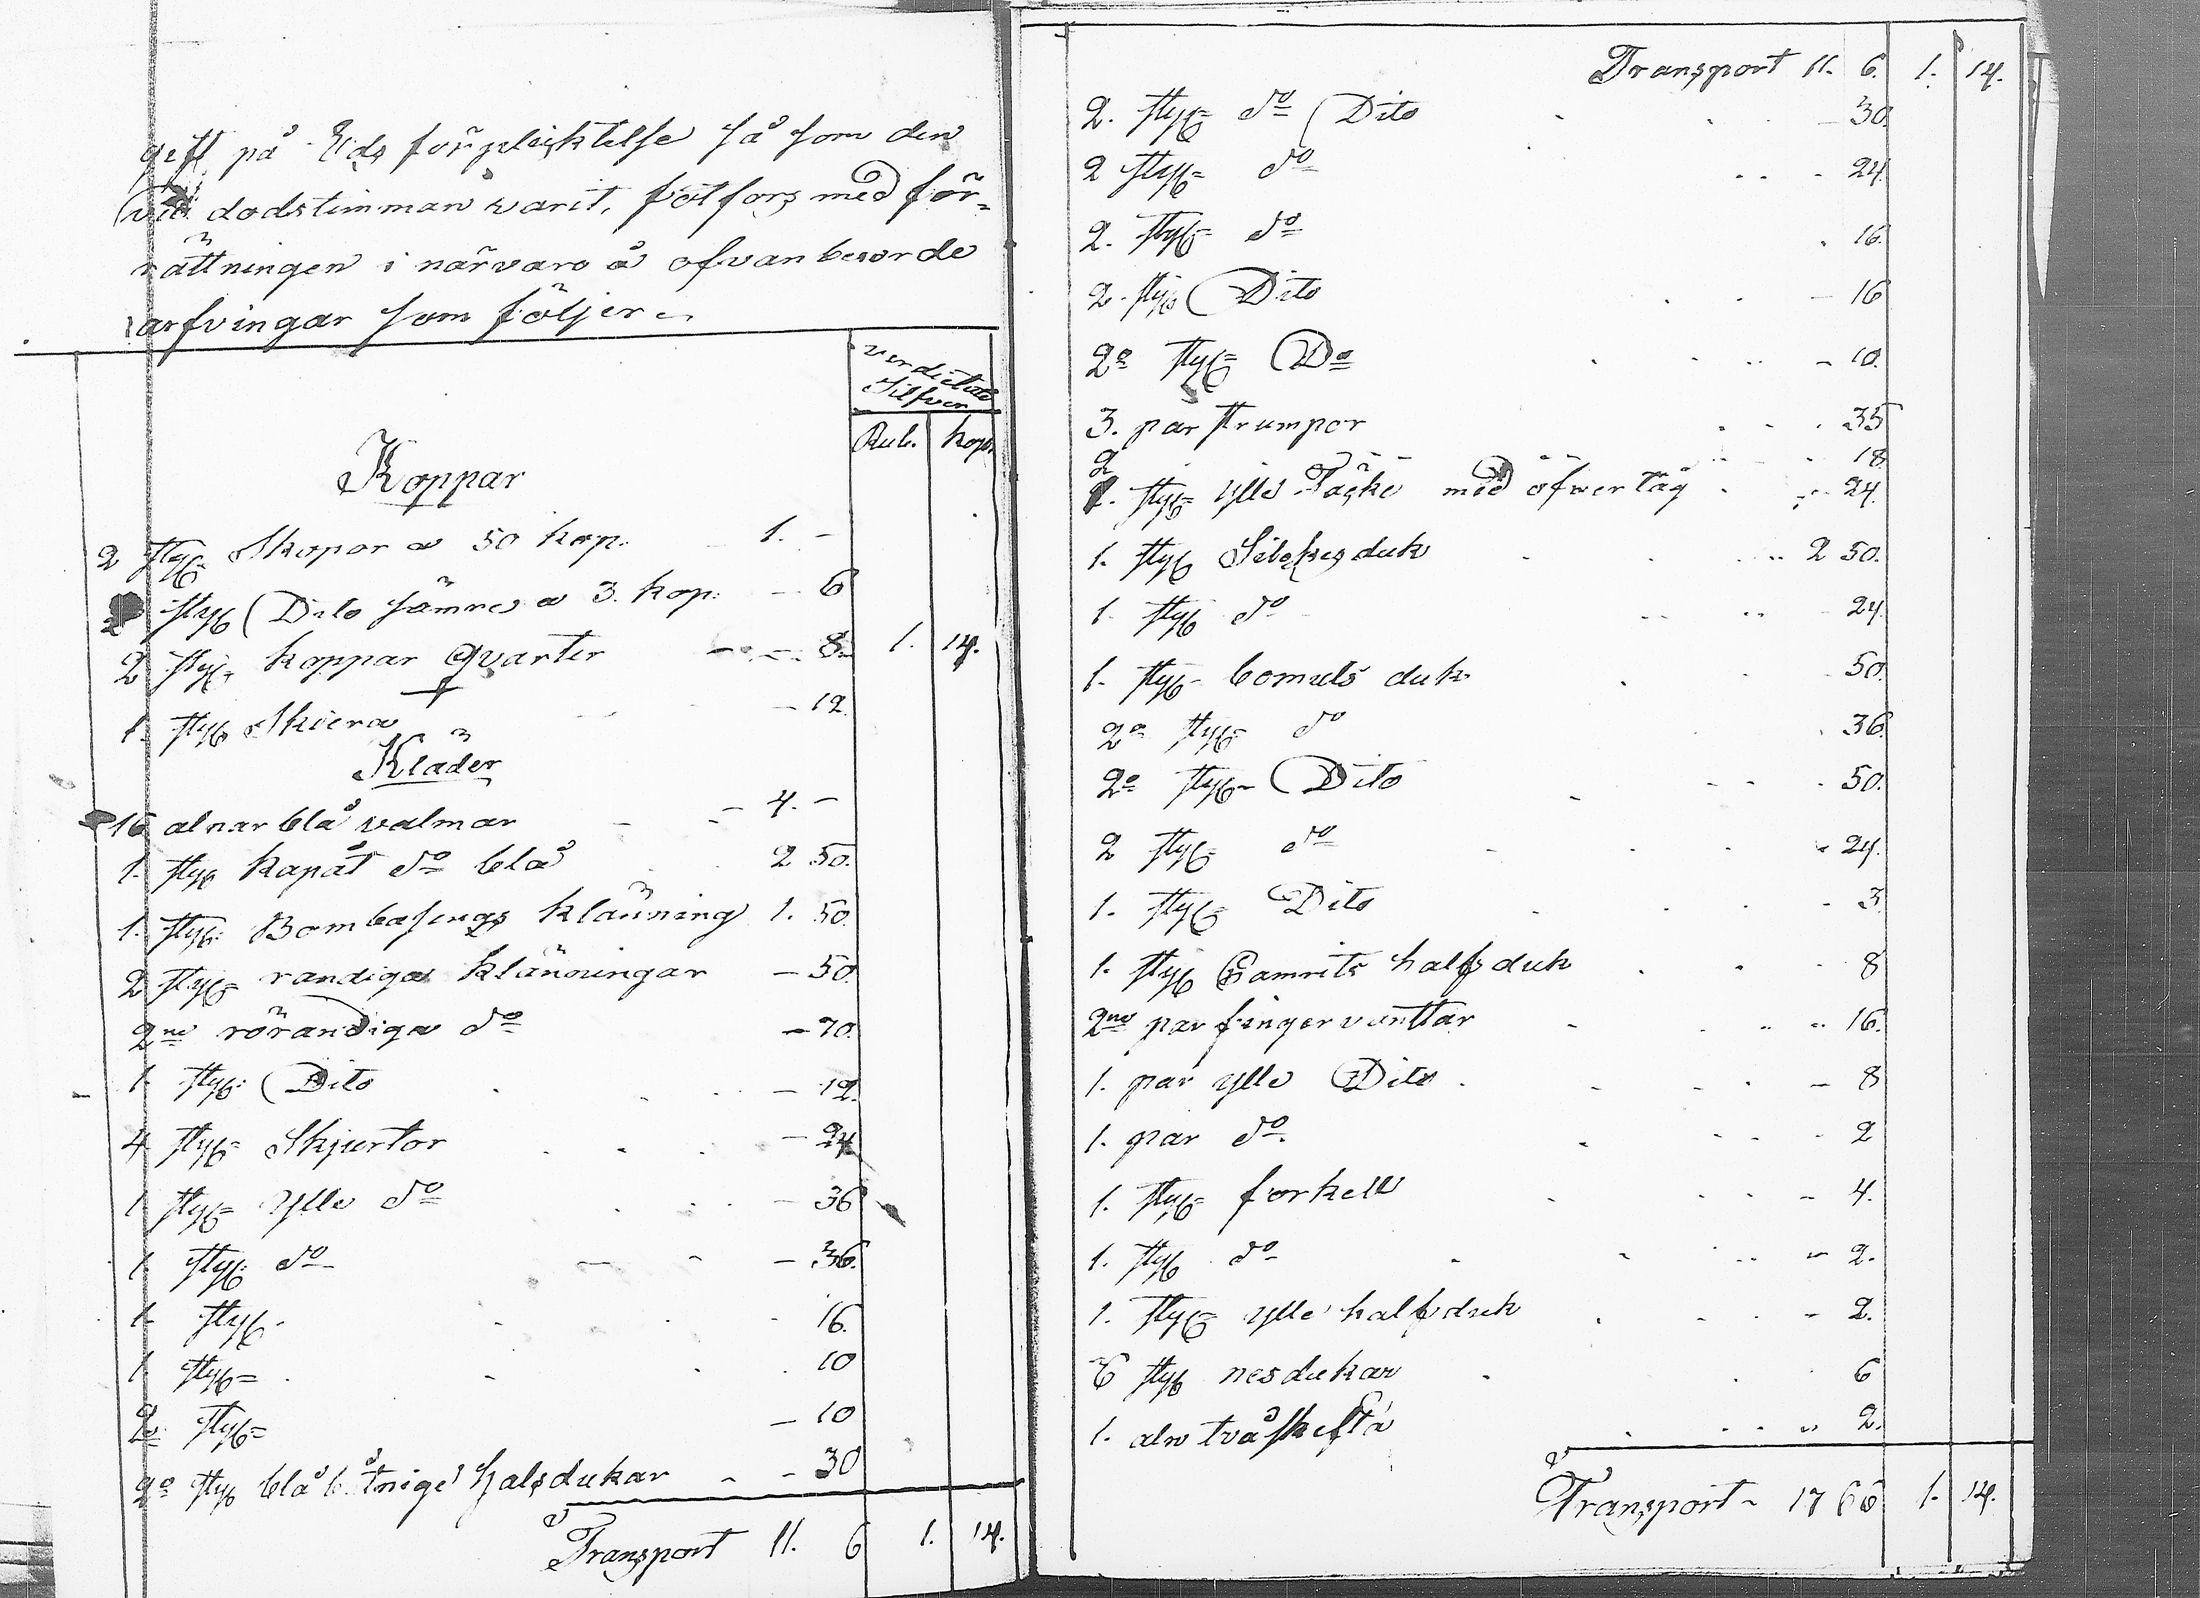 gift på Eds förpliktelse så som den
vid dödstimman varit, fötfors med för-
rättningen i närvaro å ofvanberörde
arfvingar som följer
värdieteras
Silfver
Rub. kop.
Koppar
2 styk Skopor a 50 kop. 1. -
2 styk Dito sämre a 3. kop. - 6
2 styk koppar qvarter - 8. 1. 14.
1. styk Skiera - 12
Kläder
16 alnar blå valmar - 4. -
1. styk kapåt do blå 2 50.
1. styk Bombasengs klänning 1. 50
2 styk randiga klänningar - 50
2ne rörandiga do - 70.
1. styk Dito - 12.
4 styk Skjortor - 24
1 styk ylle do - 36
1. styk do - 36.
1. styk 16.
1. styk 10
2 styk - 10
2o styk blå halsdukar - 30
Transport 11. 6 1. 14.
Transport 11. 6. 1. 14.
2. styk do Dito - 30.
2 styk do 24.
2. styk do 16.
2. styk Dito - 16
2o styk Do - 10.
3. par strumpor 35
2 - - 18
1. styk ylle Täcke med öfvertåg 24.
1. styk Silckesduk 2 50.
1. styk do 24.
1. styk bomuls duk 50.
2o styk do 36.
2o styk Dito 50.
2 styk do 24.
1. styk Dito 3
1. styk halfsduk 8
2ne par fingervanttar 16.
1. par ylle Dito - 8
1. par do 2
1. styk forkell - 4.
1. styk do 2.
1. styk ylle halfsduk - 2.
6 styk nesdukar 6
1. aln tvåskefta 2.
Transport - 17 66 1. 14.